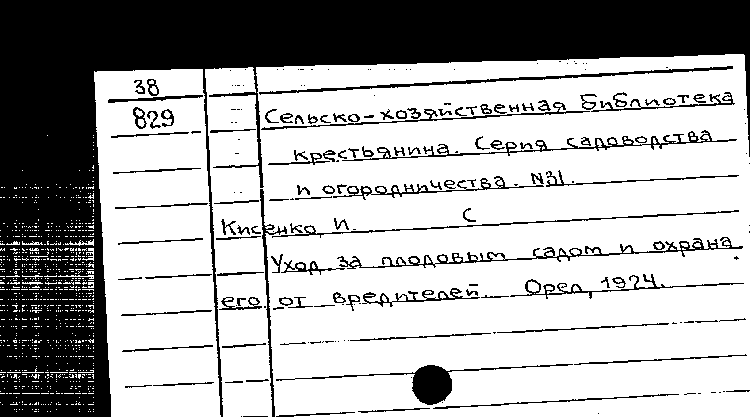 38
829 Сельско-хозяйственная библиотека
крестьянина. Серия садоводства
и огородничества. №31.
Кисенко, И. С
Уход за плодовым садом и охрана
его от вредителей. Орел, 1924.